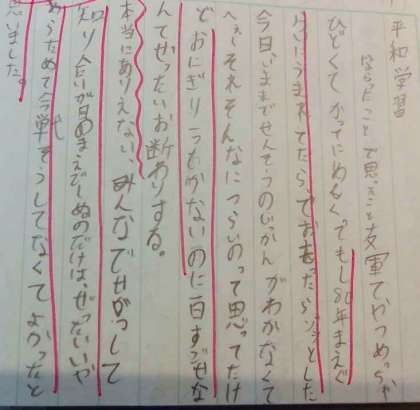 平和学習
ならったことで思ったこと
ひどくてかってにめ
せいにうまれてたら、てお思ったらゾッとした
今日いままでせんそうのじっかんがわかなくて
へぇーそれそんなにつらいのって思ってたけ
どおにぎり一つもかないのに一日すごせな
んてぜったいお断わりする。
本当にありえない、みんなでせがっして
知り合いが目のまえでしぬのだけは、ぜったいいや
あらためて今戦そうしてなくてよかったと
思いました。